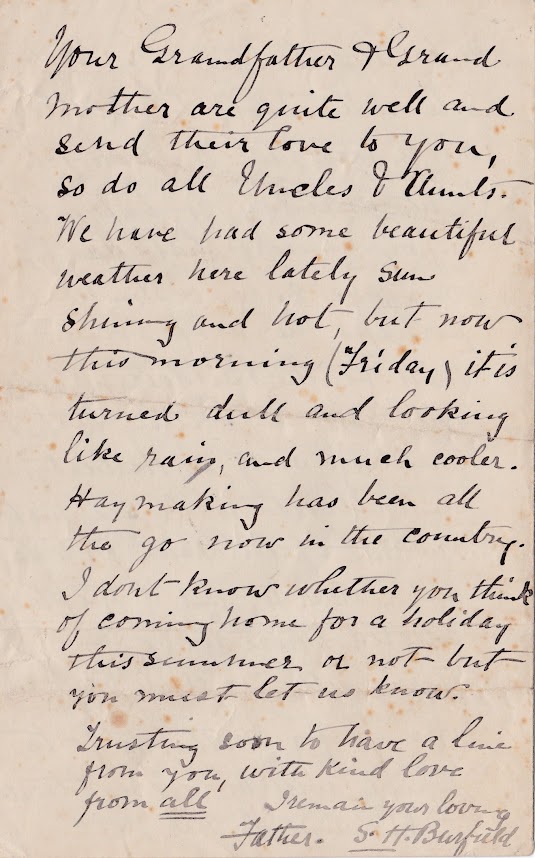 Your Grandfather & Grand
mother are quite well and
send their love to you,
so do all Uncles & Aunts.
We have had some beautiful
weather here lately sun
shining and hot, but now
this morning (Friday) it is
turned dull and looking
like rain, and much cooler.
Haymaking has been all
the go now in the country.
I dont know whether you think
of coming home for a holiday
this summer or not but
you must let us know.
Trusting soon to have a line
from you, with kind love
from all I remain your loving
Father. S. H. Burfield